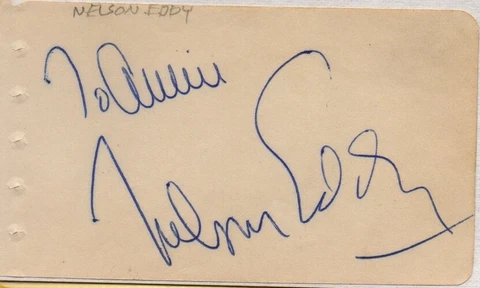 NELSON EDDY
To Annie
Nelson Eddy